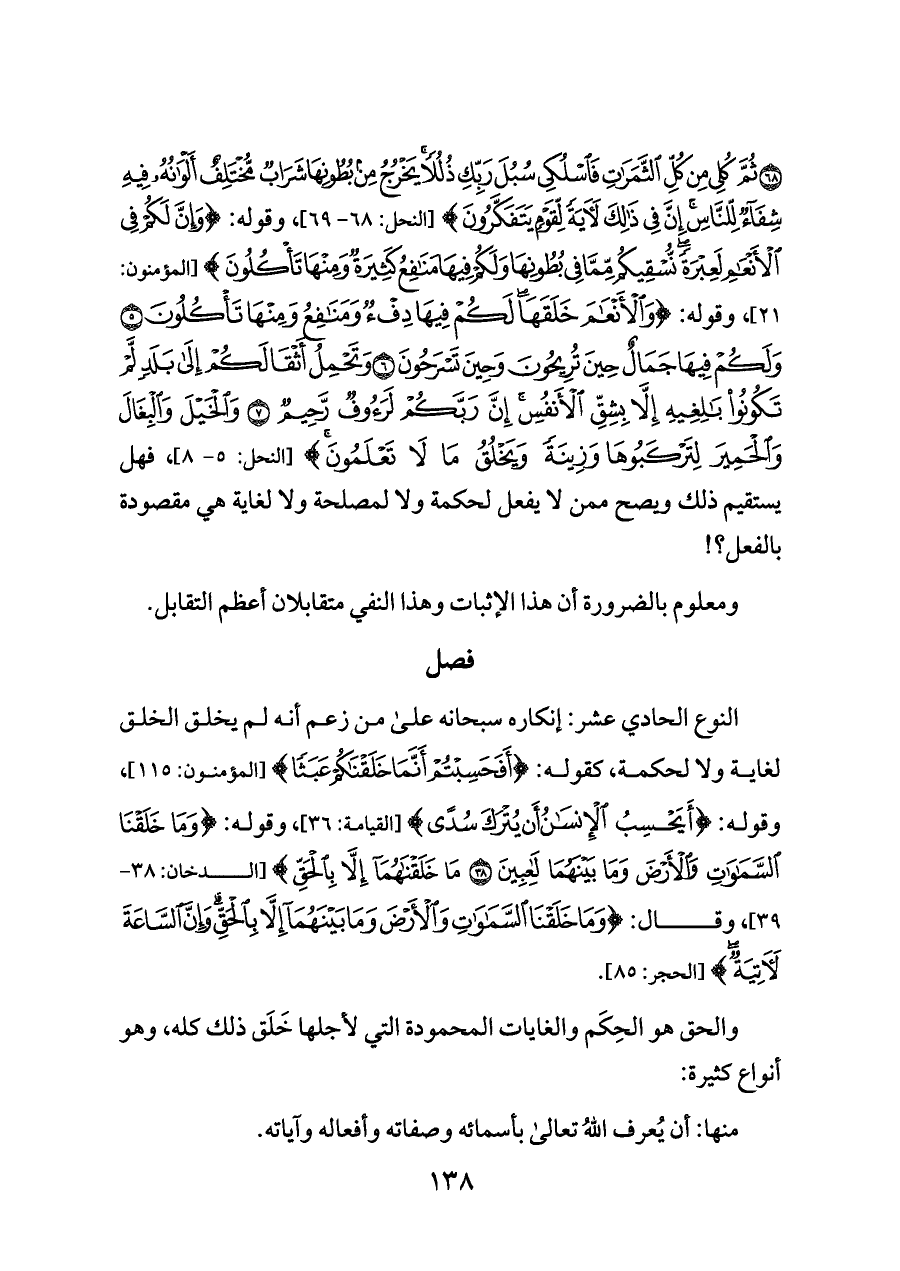 ۝٦٨ ثُمَّ كُلِي مِن كُلِّ ٱلثَّمَرَٰتِ فَٱسْلُكِي سُبُلَ رَبِّكِ ذُلُلًاۚ يَخْرُجُ مِنۢ بُطُونِهَا شَرَابٌ مُّخْتَلِفٌ أَلْوَٰنُهُۥ فِيهِ
شِفَآءٌ لِّلنَّاسِۚ إِنَّ فِي ذَٰلِكَ لَأٓيَةً لِّقَوْمٍ يَتَفَكَّرُونَ﴾ [النحل: ٦٨- ٦٩]، وقوله: ﴿وَإِنَّ لَكُمْ فِي
ٱلْأَنْعَٰمِ لَعِبْرَةًۖ نُّسْقِيكُم مِّمَّا فِي بُطُونِهَا وَلَكُمْ فِيهَا مَنَٰفِعُ كَثِيرَةٌ وَمِنْهَا تَأْكُلُونَ﴾ [المؤمنون:
٢١]، وقوله: ﴿وَٱلْأَنْعَٰمَ خَلَقَهَاۖ لَكُمْ فِيهَا دِفْءٌ وَمَنَٰفِعُ وَمِنْهَا تَأْكُلُونَ ۝٥
وَلَكُمْ فِيهَا جَمَالٌ حِينَ تُرِيحُونَ وَحِينَ تَسْرَحُونَ ۝٦ وَتَحْمِلُ أَثْقَالَكُمْ إِلَىٰ بَلَدٍ لَّمْ
تَكُونُوا۟ بَٰلِغِيهِ إِلَّا بِشِقِّ ٱلْأَنفُسِۚ إِنَّ رَبَّكُمْ لَرَءُوفٌ رَّحِيمٌ ۝٧ وَٱلْخَيْلَ وَٱلْبِغَالَ
وَٱلْحَمِيرَ لِتَرْكَبُوهَا وَزِينَةً وَيَخْلُقُ مَا لَا تَعْلَمُونَۚ﴾ [النحل: ٥- ٨]، فهل
يستقيم ذلك ويصح ممن لا يفعل لحكمة ولا لمصلحة ولا لغاية هي مقصودة
بالفعل؟!
ومعلوم بالضرورة أن هذا الإثبات وهذا النفي متقابلان أعظم التقابل.
فصل
النوع الحادي عشر: إنكاره سبحانه علىٰ من زعم أنه لم يخلق الخلق
لغاية ولا لحكمة، كقوله: ﴿أَفَحَسِبْتُمْ أَنَّمَا خَلَقْنَٰكُمْ عَبَثًا﴾ [المؤمنون: ١١٥]،
وقوله: ﴿أَيَحْسِبُ ٱلْإِنسَٰنُ أَن يُتْرَكَ سُدًى﴾ [القيامة: ٣٦]، وقوله: ﴿وَمَا خَلَقْنَا
ٱلسَّمَٰوَٰتِ وَٱلْأَرْضَ وَمَا بَيْنَهُمَا لَٰعِبِينَ ۝٣٨ مَا خَلَقْنَٰهُمَآ إِلَّا بِٱلْحَقِّ﴾ [الدخان: ٣٨-
٣٩]، وقال: ﴿وَمَا خَلَقْنَا ٱلسَّمَٰوَٰتِ وَٱلْأَرْضَ وَمَا بَيْنَهُمَآ إِلَّا بِٱلْحَقِّۗ وَإِنَّ ٱلسَّاعَةَ
لَأٓتِيَةٌۖ﴾ [الحجر: ٨٥].
والحق هو الحِكَم والغايات المحمودة التي لأجلها خَلَق ذلك كله، وهو
أنواع كثيرة:
منها: أن يُعرف اللهُ تعالىٰ بأسمائه وصفاته وأفعاله وآياته.
١٣٨